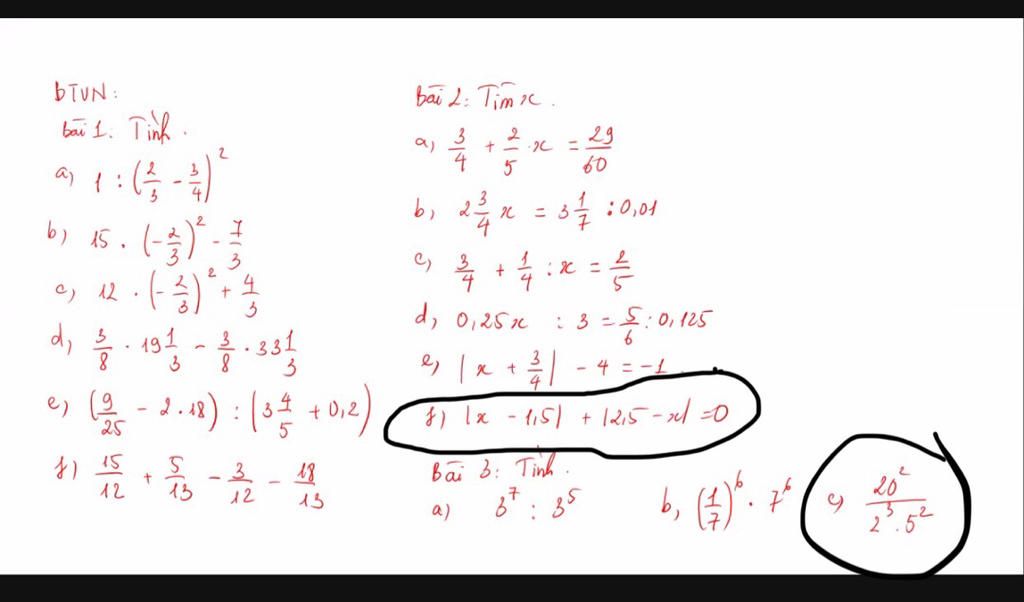 BTVN:
bài 1: Tính.
a) 1 : (2/3 - 3/4)^2
b) 15 . (-2/3)^2 - 7/3
c) 12 . (-2/3)^2 + 4/3
d) 3/8 . 19 1/3 - 3/8 . 33 1/3
e) (9/25 - 2.18) : (3 4/5 + 0,2)
f) 15/12 + 5/13 - 3/12 - 18/13
Bài 2: Tìm x.
a) 3/4 + 2/5 . x = 29/60
b) 2 3/4 x = 3 1/7 : 0,01
c) 3/4 + 1/4 : x = 2/5
d) 0,25x : 3 = 5/6 : 0,125
e) |x + 3/4| - 4 = -1
f) |x - 1,5| + |2,5 - x| = 0
Bài 3: Tính.
a) 3^7 : 3^5 b, (1/7)^6 . 7^6 c) 20^2 / 2^3 . 5^2